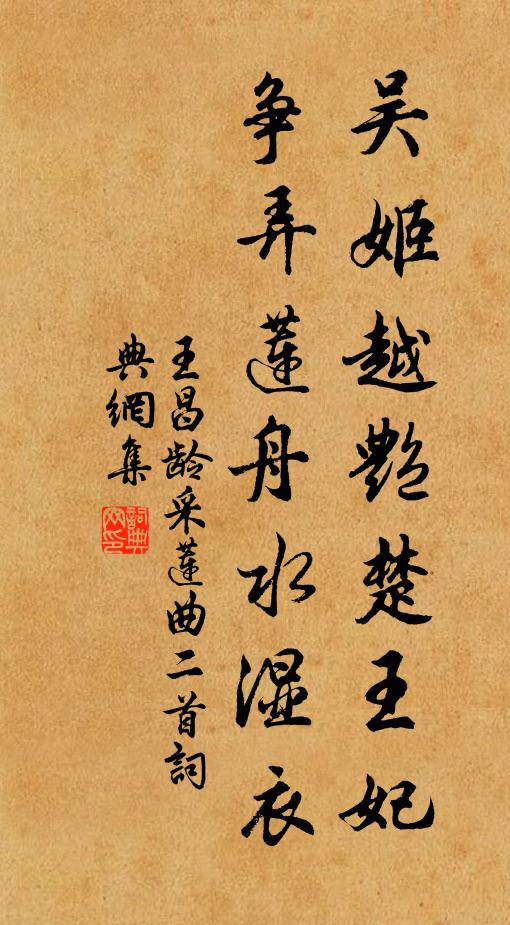 吴姬越艳楚王妃
争弄莲舟水湿衣
王昌龄采莲曲二首詞
典網集
詞典网印